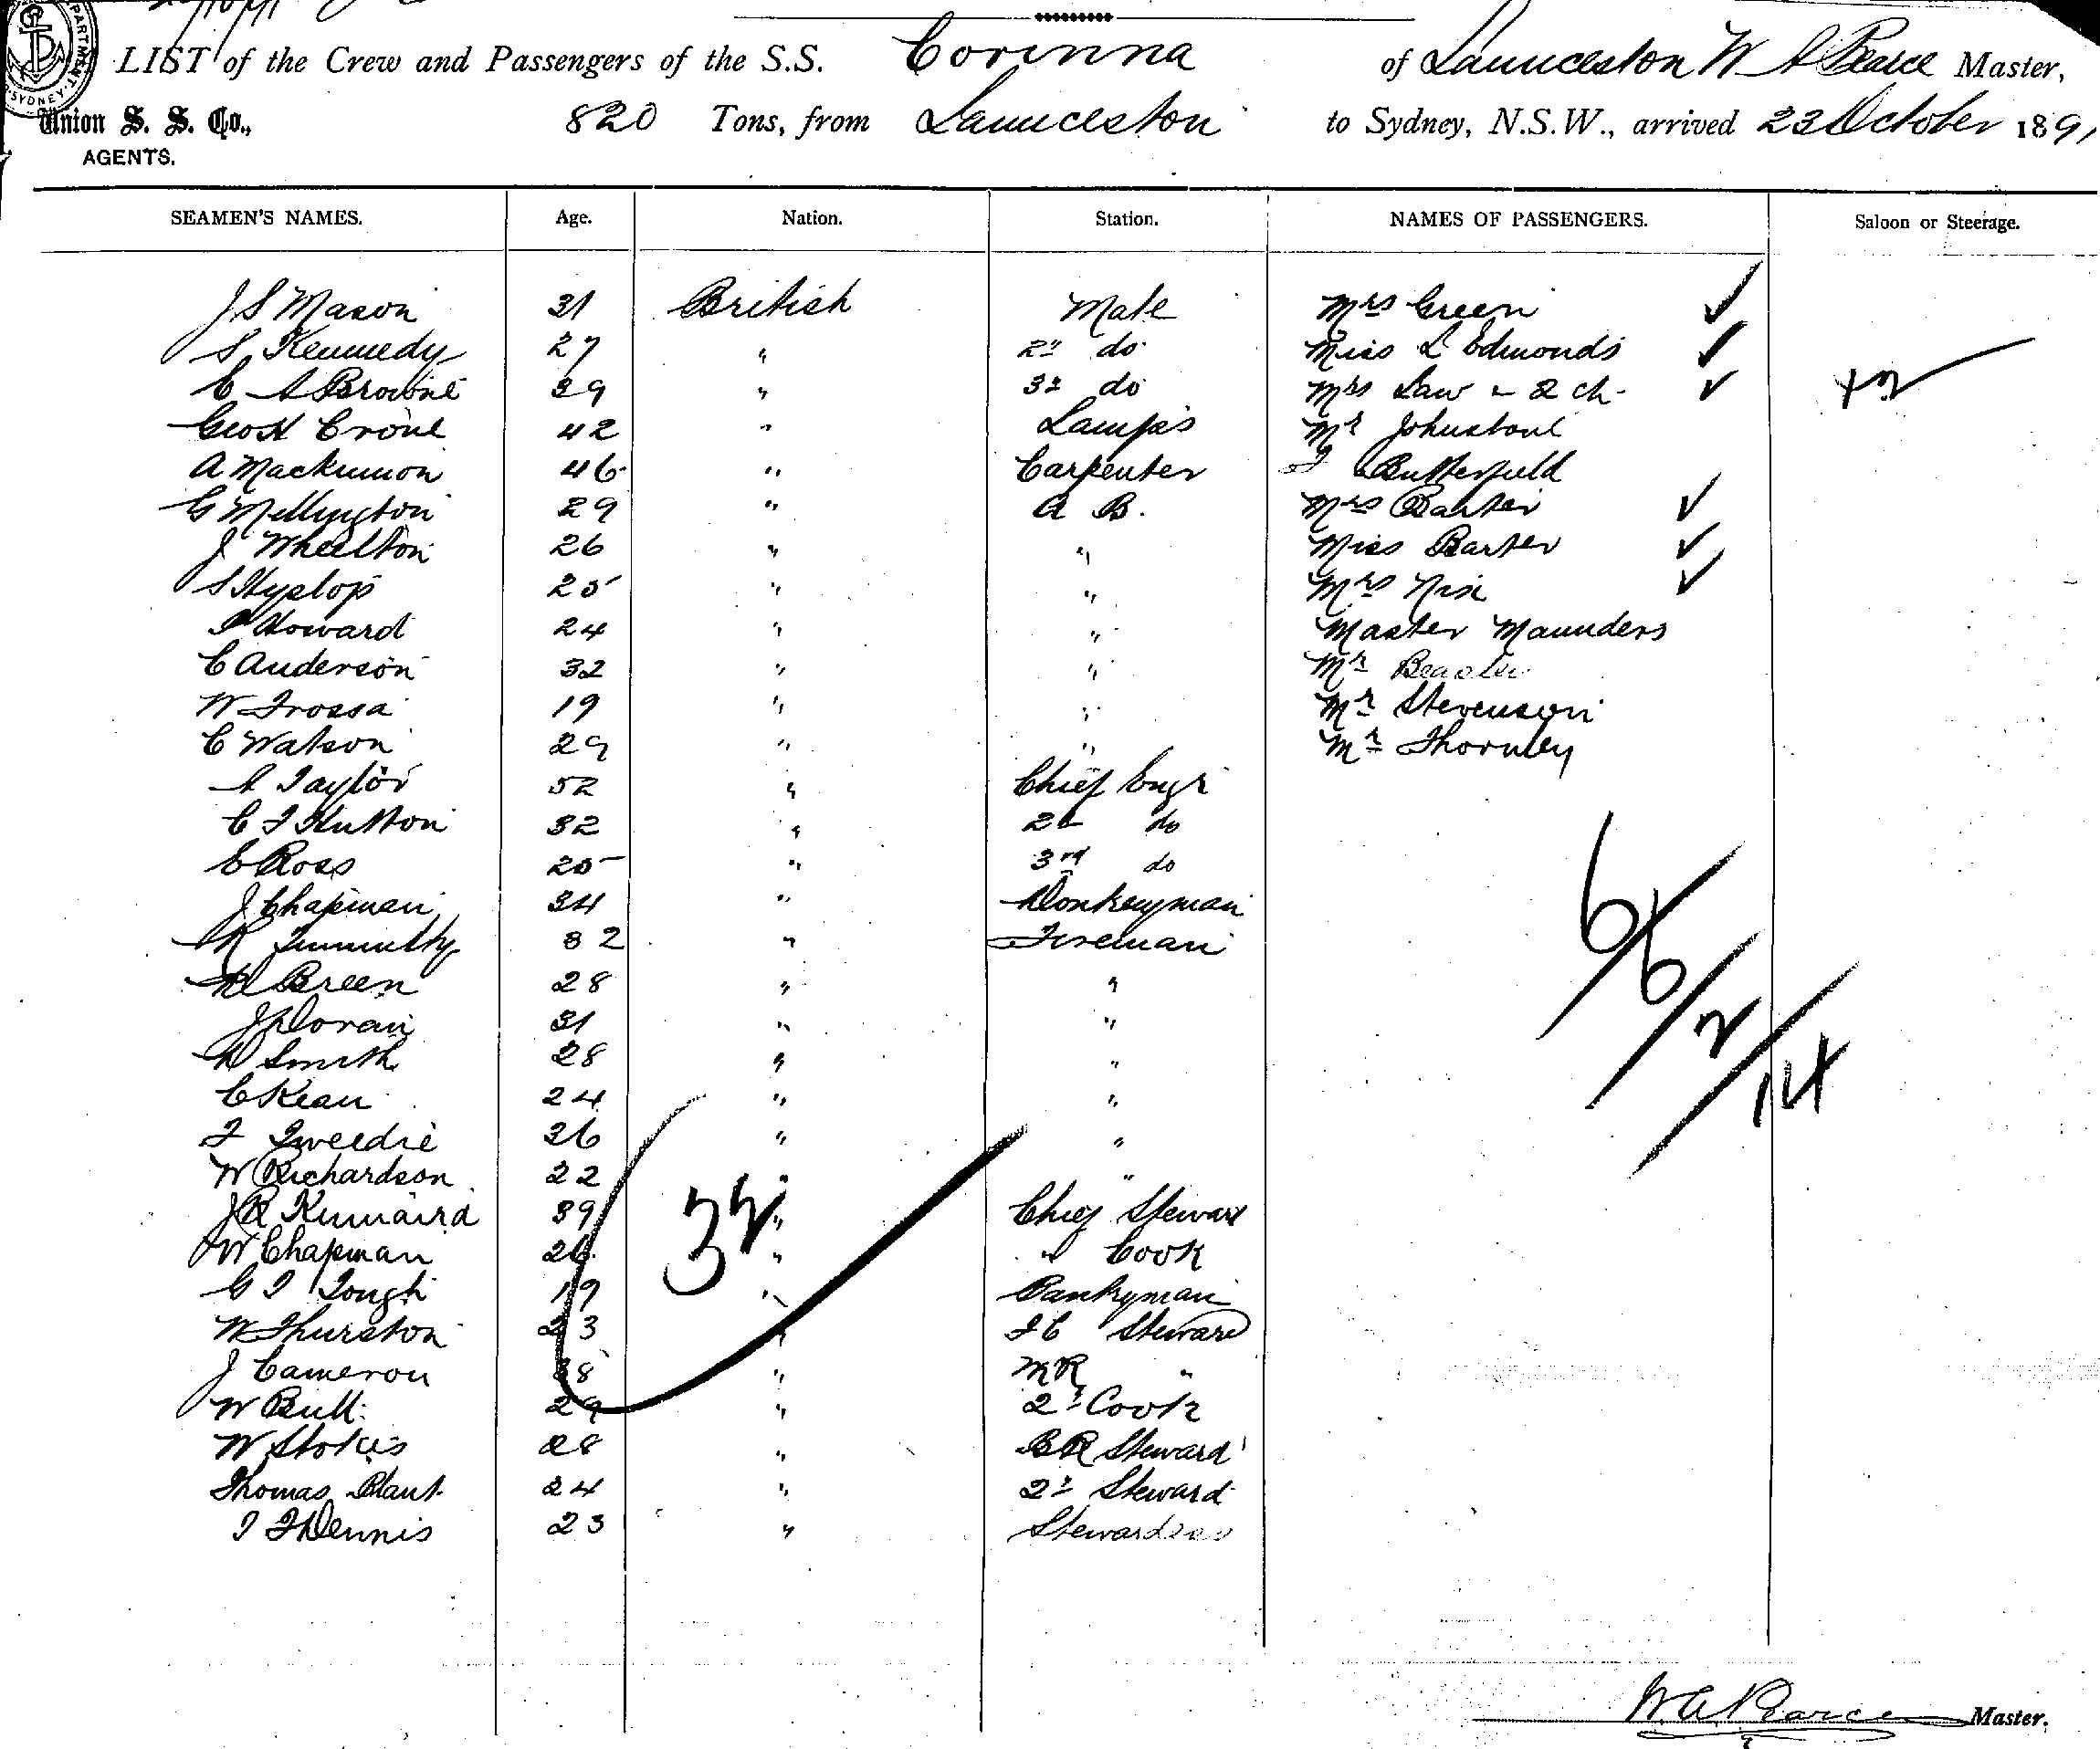 LIST of the Crew and Passengers of the S.S. Corinna of Launceston W A Pearce Master,
Union S. S. Co., 820 Tons, from Launceston to Sydney, N.S.W., arrived 23 October 1891
AGENTS.
SEAMEN'S NAMES. Age. Nation. Station. NAMES OF PASSENGERS. Saloon or Steerage.
J S Mason 31 British Mate Mrs Green
S Kennedy 27 " 2d do Miss L Edmonds
E A Browne 39 " 3d do Mrs Law & 2 ch. +2
Geo H Crone 42 " Lamps Mr Johnstone
A Mackinnon 46 " Carpenter Butterfield
G Mellington 29 " A B. Mrs Barter
J Wheelton 26 " " Miss Barter
S Hyslop 25 " " Mrs Nix
Howard 24 " " Master Maunders
C Anderson 32 " " Mr
W Frossa 19 " " Mr Stevenson
C Watson 29 " " Mr Thornley
A Taylor 52 " Chief Engr
C F Hutton 32 " 2d do
E Ross 25 " 3rd do
J Chapman 34 " Donkeyman
R 32 " Fireman
M Breen 28 " "
J Doran 31 " "
D Smith 28 " "
C Kean 24 " "
J Tweedie 26 " "
W Richardson 22 " "
J R Kinnaird 39 " Chief Steward
W Chapman 26 " " Cook
G T Tough 19 " Pantryman
W Thurston 23 " F C Steward
J Cameron 38 " M R "
W Bull 29 " 2d Cook
W Stokes 28 " B R Steward
Thomas Plant 24 " 2d Steward
I F Dennis 23 " Stewardess
6/6/2/14
32
W. A. Pearce Master.